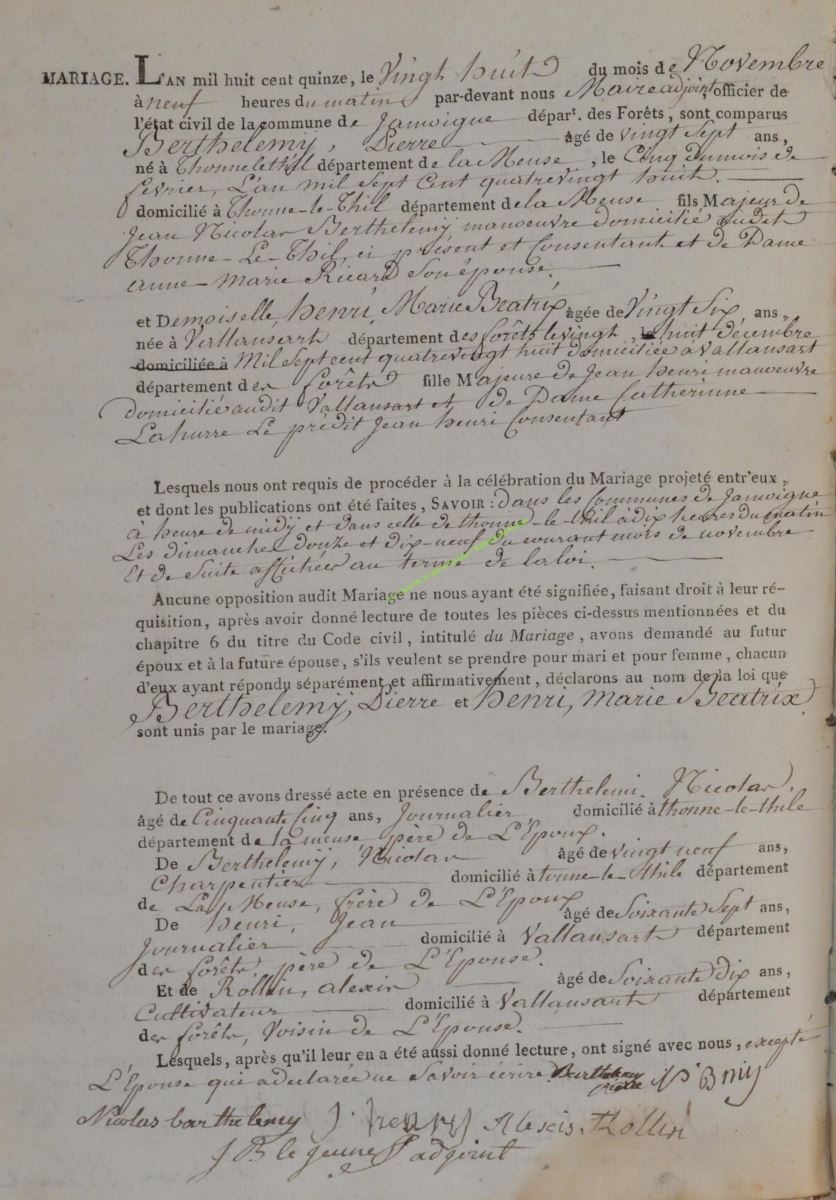 MARIAGE. L'AN mil huit cent quinze, le Vingt huit du mois de Novembre
à neuf heures du matin par-devant nous Maire adjoint officier de
l'état civil de la commune de Jamoigne dépar<sup>t</sup>. des Forêts, sont comparus
Berthelemy, Pierre âgé de vingt Sept ans,
né à Thonnelethil département de la Meuse, le Cinq du mois de
fevrier, L'an mil Sept Cent quatrevingt huit.
domicilié à Thonne-le-Thil département de la Meuse fils Majeur de
Jean Nicolas Berthelemy manoeuvre domicilié audit
Thonne-Le-Thil, ci présent et Consentant et de Dame
anne-marie Ricard Son épouse.
et Demoiselle, henri, Marie Beatrix, âgée de Vingt Six ans,
née à Vallansart département des forêts le vingt, huit décembre
domiciliée à Mil Sept cent quatrevingt huit domiciliée à Vallansart
département des forêts fille Majeure de Jean henri manoeuvre
domicilié audit Vallansart et de Dame Catherinne
Lahurre Le prédit Jean henri Consentant
Lesquels nous ont requis de procéder à la célébration du Mariage projeté entr'eux,
et dont les publications ont été faites, SAVOIR : dans les Communes de Jamoigne
à heure de midy et dans celle de thonne-le-thil à dix heures du matin
Les dimanches douze et dix-neuf du courant mois de novembre
Et de Suite affichées au terme de la loi.
Aucune opposition audit Mariage ne nous ayant été signifiée, faisant droit à leur ré-
quisition, après avoir donné lecture de toutes les pièces ci-dessus mentionnées et du
chapitre 6 du titre du Code civil, intitulé du Mariage, avons demandé au futur
époux et à la future épouse, s'ils veulent se prendre pour mari et pour femme, chacun
d'eux ayant répondu séparément et affirmativement, déclarons au nom de la loi que
Berthelemy, Pierre et henri, marie Beatrix
sont unis par le mariage.
De tout ce avons dressé acte en présence de Berthelemi. Nicolas,
âgé de Cinquante Cinq ans, Journalier, domicilié à thonne-le-thile
département de la meuse père de L'Epoux.
De Berthelemy, Nicolas âgé de vingt neuf ans,
Charpentier domicilié à tonne-le-thile département
de La Meuse, frère de L'Epoux
De henri, Jean âgé de Soixante Sept ans,
Journalier domicilié à Vallansart département
des forêts, père de L'Epouse.
Et de Rollin, alexis âgé de Soixante dix ans,
Cultivateur domicilié à Vallansart département
des forêts, Voisin de L'Epouse.
Lesquels, après qu'il leur en a été aussi donné lecture, ont signé avec nous, excepté
L'Epouse qui a declarée ne Savoir écrire Barthelemy
Nicolas barthelemy J henry Alexis Rollin
J B le jeune adjoint